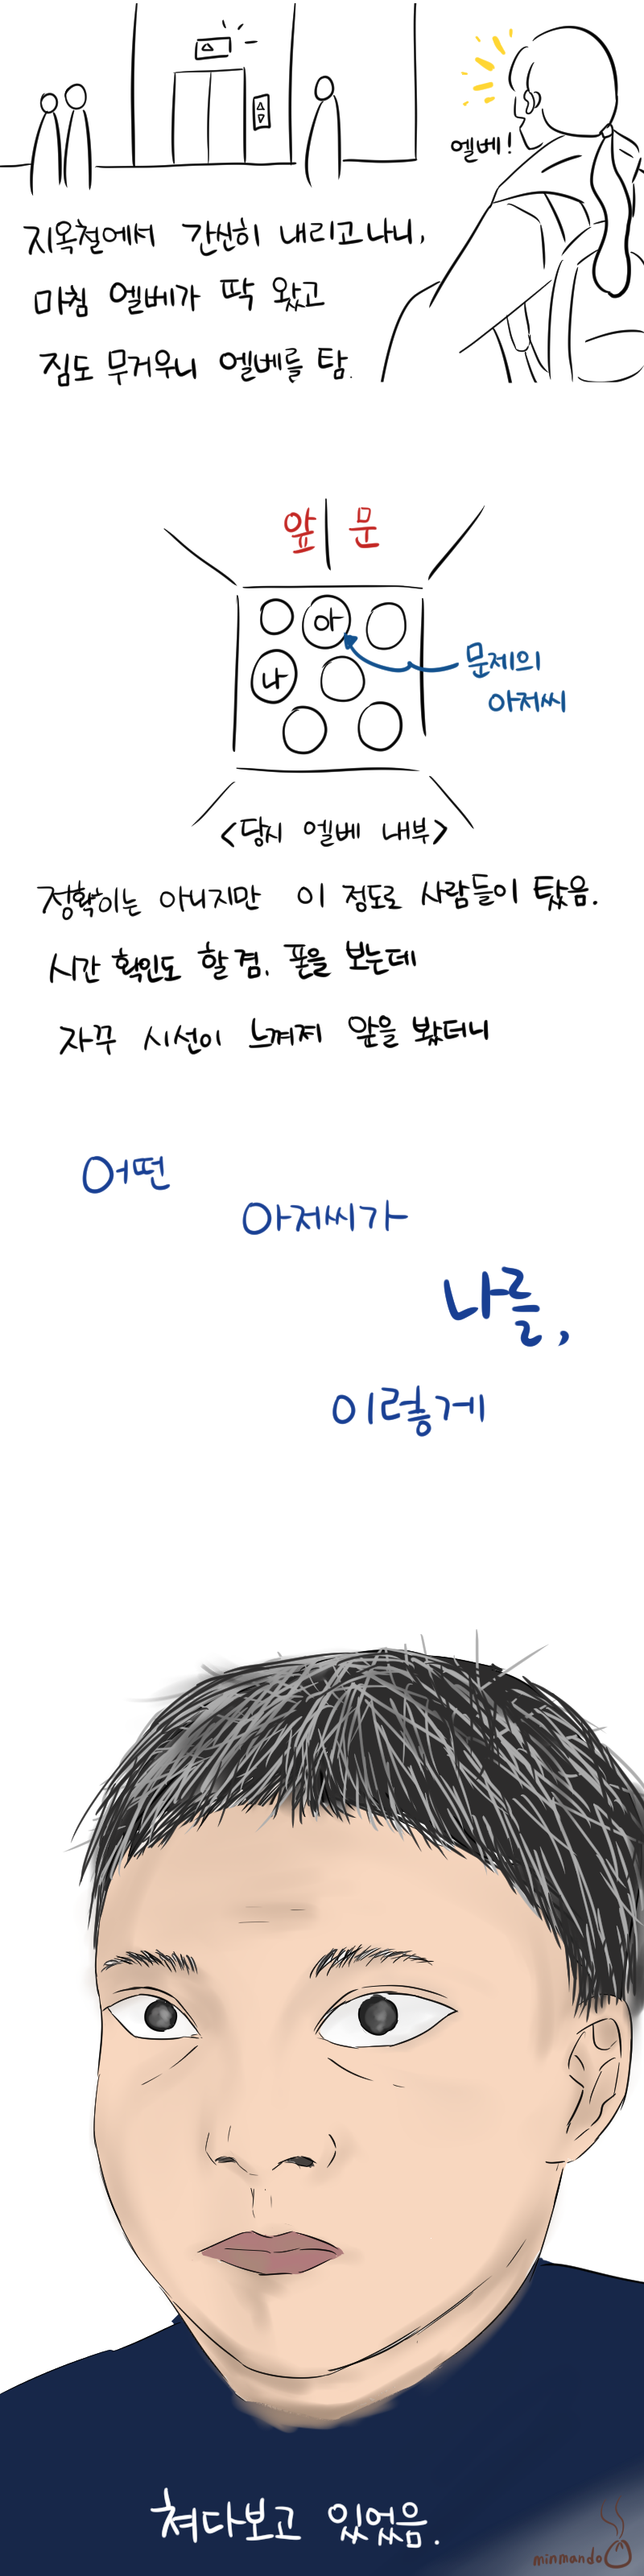 엘베!
지옥철에서 간신히 내리고나니,
마침 엘베가 딱 왔고
짐도 무거우니 엘베를 탐.
앞 문
아
나
문제의
아저씨
<당시 엘베 내부>
정확히는 아니지만 이 정도로 사람들이 탔음.
시간 확인도 할 겸, 폰을 보는데
자꾸 시선이 느껴져 앞을 봤더니
어떤
아저씨가
나를,
이렇게
쳐다보고 있었음.
minmando